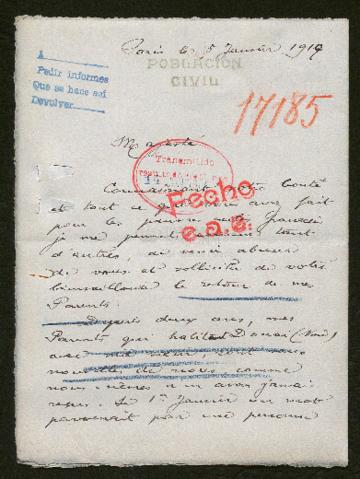 Paris le 5 Janvier 1917
A
Pedir informes
Que se hace así
Devolver
POBLACIÓN
CIVIL
17185
Majesté
Transmitido
Fecho
Connaissant votre bonté
et tout ce que avez fait
pour les
je me permets tant
d'autres, de venir abuser
de vous et sollicite de votre
bienveillance le retour de mes
Parents.
Depuis deux ans, mes
Parents qui habitent Douai (Nord)
avec ma sœur, sont sans
nouvelles de nous, comme
nous mêmes n'en avons jamais
reçus. Le 1er Janvier un mot
parvenait par une personne